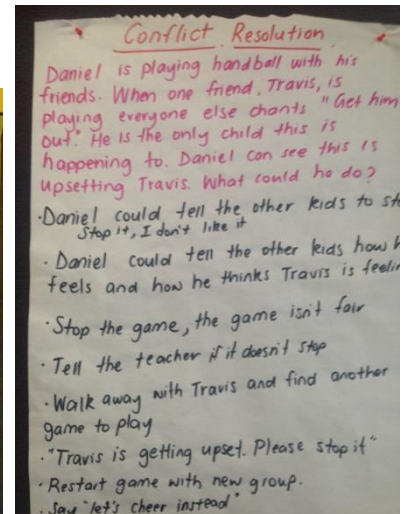 Conflict Resolution
Daniel is playing handball with his
friends. When one friend, Travis, is
playing everyone else chants "Get him
out." He is the only child this is
happening to. Daniel can see this is
upsetting Travis. What could he do?
·Daniel could tell the other kids to
Stop it, I don't like it
·Daniel could tell the other kids how
feels and how he thinks Travis is
·Stop the game, the game isn't fair
·Tell the teacher if it doesn't stop
·Walk away with Travis and find another
game to play
·"Travis is getting upset. Please stop it"
·Restart game with new group.
·Say "let's cheer instead"